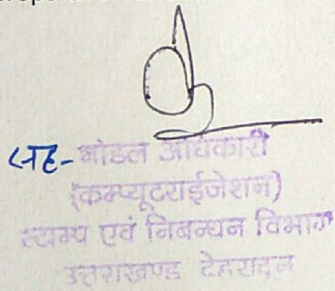 सह-नोडल अधिकारी
(कम्प्यूटराईजेशन)
स्टाम्प एवं निबन्धन विभाग
उत्तराखण्ड देहरादून